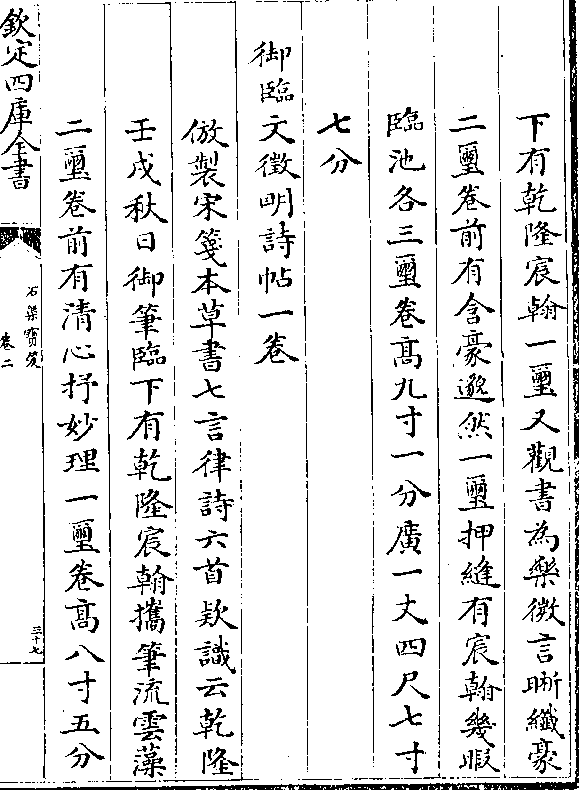 下有乾隆宸翰一璽又觀書為樂微言晣纎豪
二璽卷前有含豪邈然一璽押縫有宸翰幾暇
臨池各三璽卷髙九寸一分廣一丈四尺七寸
七分
御臨文徵明詩帖一卷
倣製宋箋本草書七言律詩六首欵識云乾隆
壬戌秋日御筆臨下有乾隆宸翰攜筆流雲藻
二璽卷前有清心抒妙理一璽卷髙八寸五分
欽定四庫全書
石渠寶笈
卷二
三十七